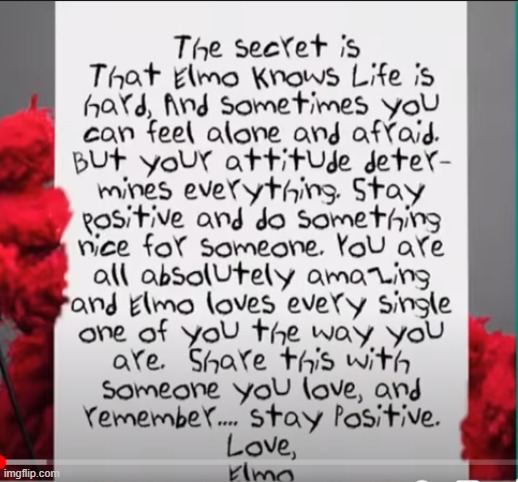 The secret is
That Elmo Knows Life is
hard, And sometimes you
can feel alone and afraid.
But your attitude deter-
mines everything. Stay
positive and do something
nice for someone. You are
all absolutely amazing
and Elmo loves every single
one of you the way you
are. Share this with
someone you love, and
remember.... stay Positive.
Love,
Elmo
imgflip.com